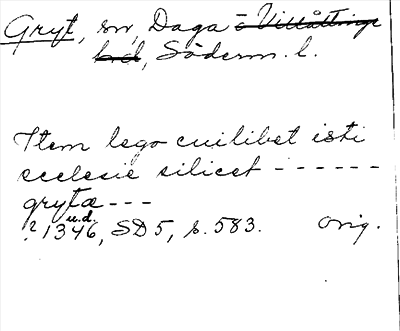 Gryt, sn, Daga o Villåttinge
hd, Söderm. l.
Item lego cuilibet isti
ecclesie silicet ------
grytæ ---
u.d.
? 1346, SD 5, s. 583. Orig.